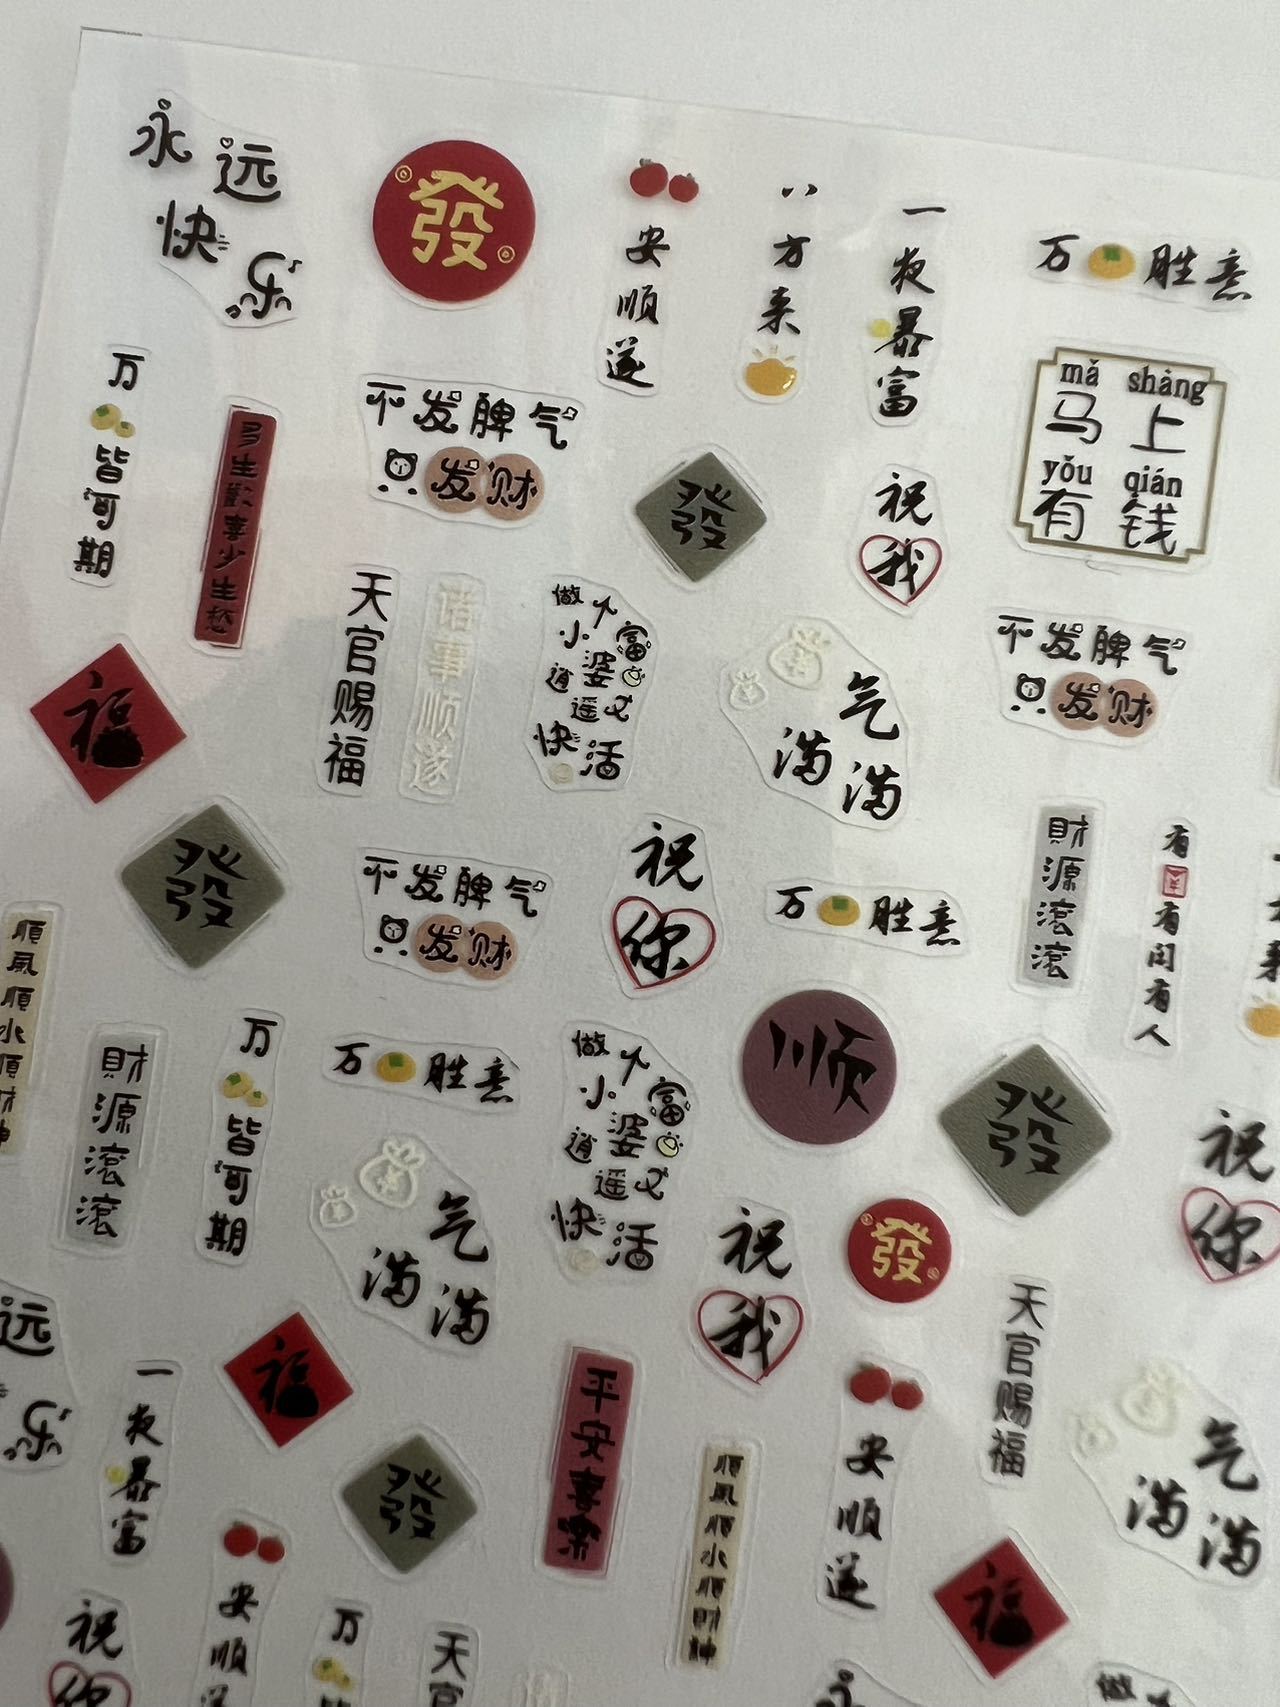 永远
快乐
發
安顺遂
八方来
一夜暴富
万胜意
万皆可期
多生歡喜少生愁
不发脾气
只发财
發
祝我
mǎ shàng
马上
yǒu qián
有钱
福
天官赐福
诸事顺遂
做个
小富婆
逍遥又
快活
气满满
不发脾气
只发财
發
不发脾气
只发财
祝你
万胜意
財源滾滾
有有闲有人
来
順風順水順財神
財源滾滾
万皆可期
万胜意
气满满
做个
小富婆
逍遥又
快活
顺
發
祝你
祝我
發
天官赐福
远
乐
一夜暴富
福
發
平安喜樂
順風順水順財神
安顺遂
气满满
福
祝你
安顺
万
天
做